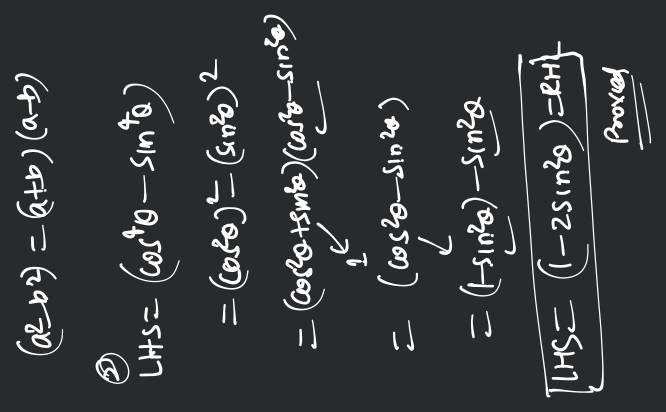 (a²-b²) = (a+b)(a-b)
②
LHS = (cos⁴θ - sin⁴θ)
= (cos²θ)² - (sin²θ)²
= (cos²θ + sin²θ)(cos²θ - sin²θ)
1
= (cos²θ - sin²θ)
= (1 - sin²θ) - sin²θ
LHS = (1 - 2sin²θ) = RHS
Proved